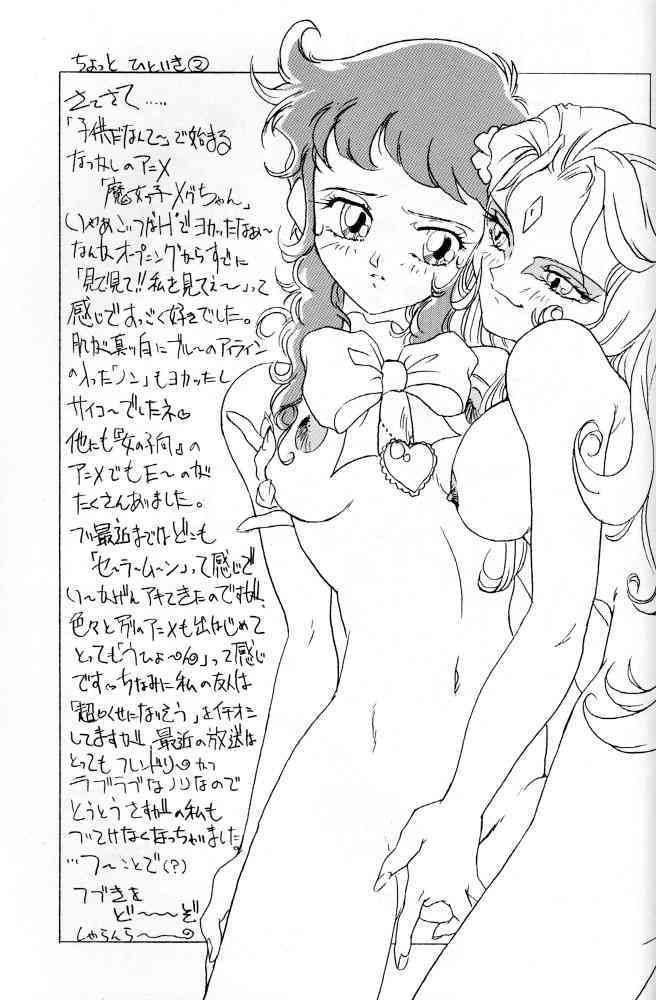 ちょっと ひといき②
さてさて.....
「子供だなんて〜」で始まる
なつかしのアニメ
「魔女っ子メグちゃん」
いやあごっつぱHでヨカッたなぁ〜
なんかオープニングからすでに
「見て見て!!私を見てぇ〜」って
感じですっごく好きでした。
肌が真ッ白にブルーのアイライン
の入った「ノン」もヨカッたし
サイコ〜でしたネ♡
他にも『女の子向』の
アニメでもE〜のが
たくさんありました。
つい最近まではどこも
「セーラームーン」って感じで
い〜かげんアキてきたのですが、
色々と別のアニメも出はじめて
とっても「うひょ〜ん」って感じ
です♡ちなみに私の友人は
「超くせになりそう」をイチオシ
してますが、最近の放送は
とってもフレンドリーかつ
ラブラブなノリなので
とうとうさすがの私も
ついてけなくなっちゃいました。
…つ〜ことで(?)
つづきを
ど〜〜〜ぞ
しゃらんら〜〜